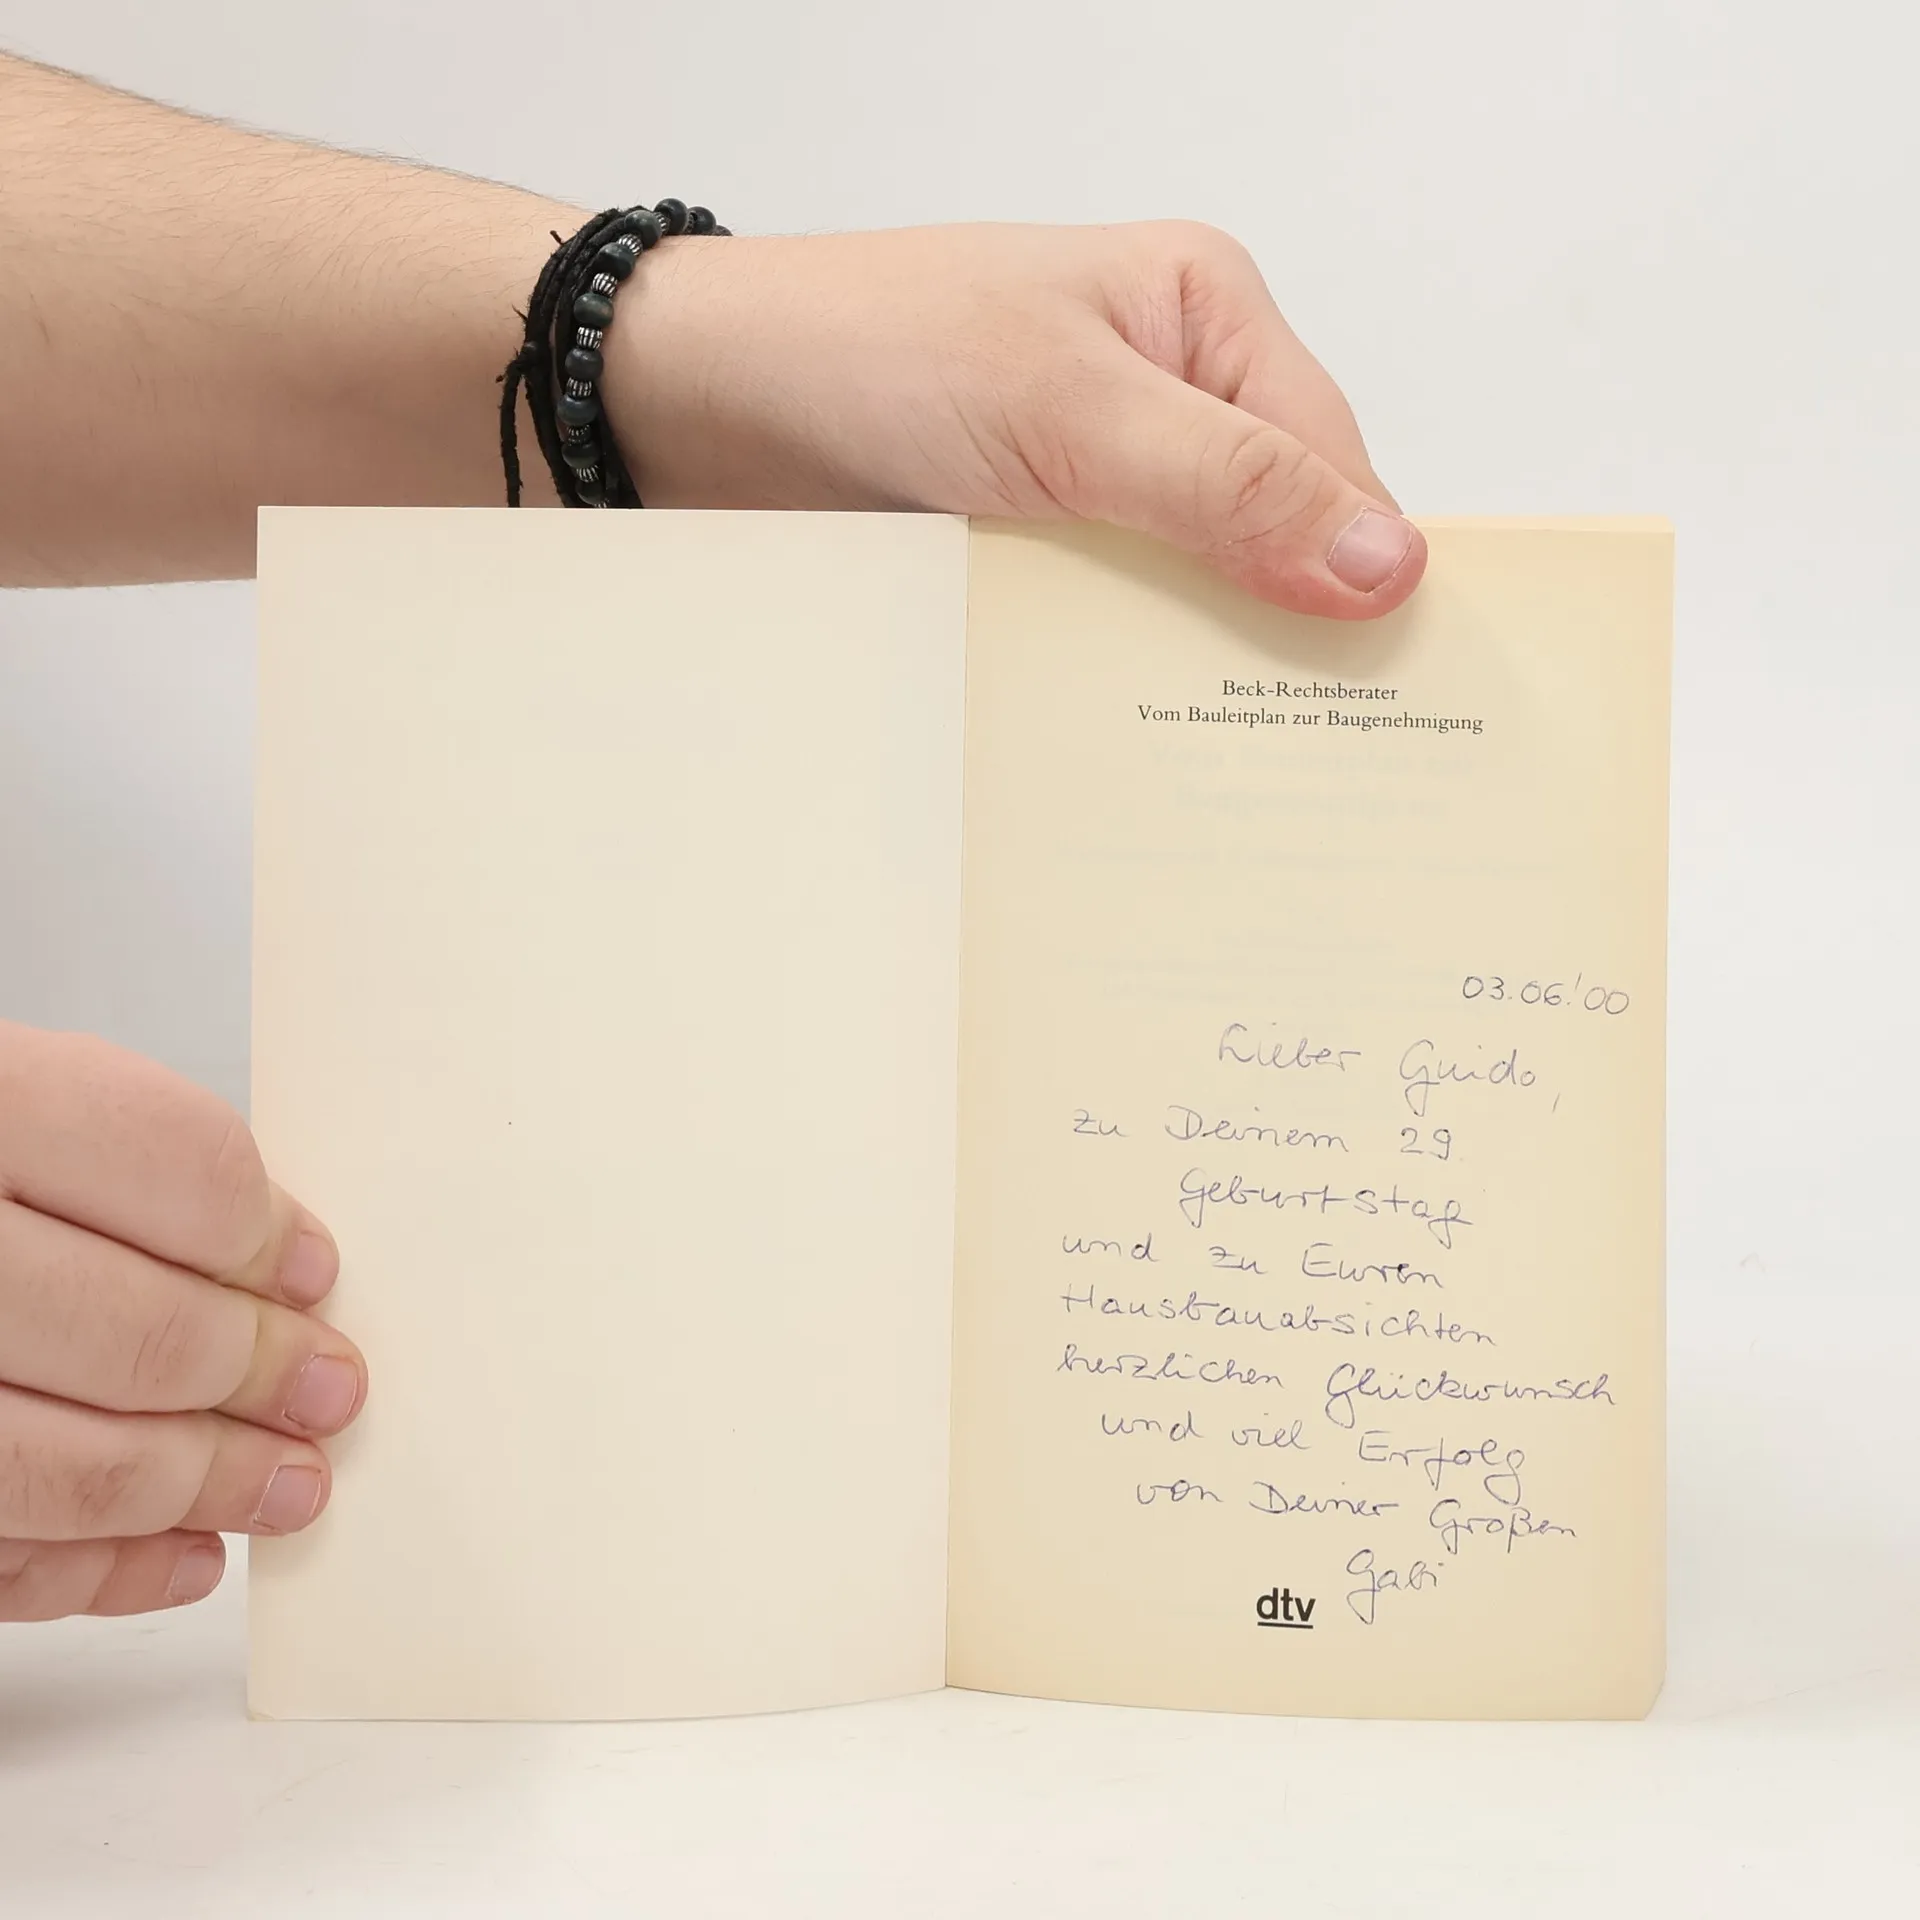 Beck-Rechtsberater
Vom Bauleitplan zur Baugenehmigung
03.06.'00
Lieber Guido,
zu Deinem 29.
Geburtstag
und zu Euren
Hausbauabsichten
herzlichen Glückwunsch
und viel Erfolg
von Deiner Großen
Gabi
dtv